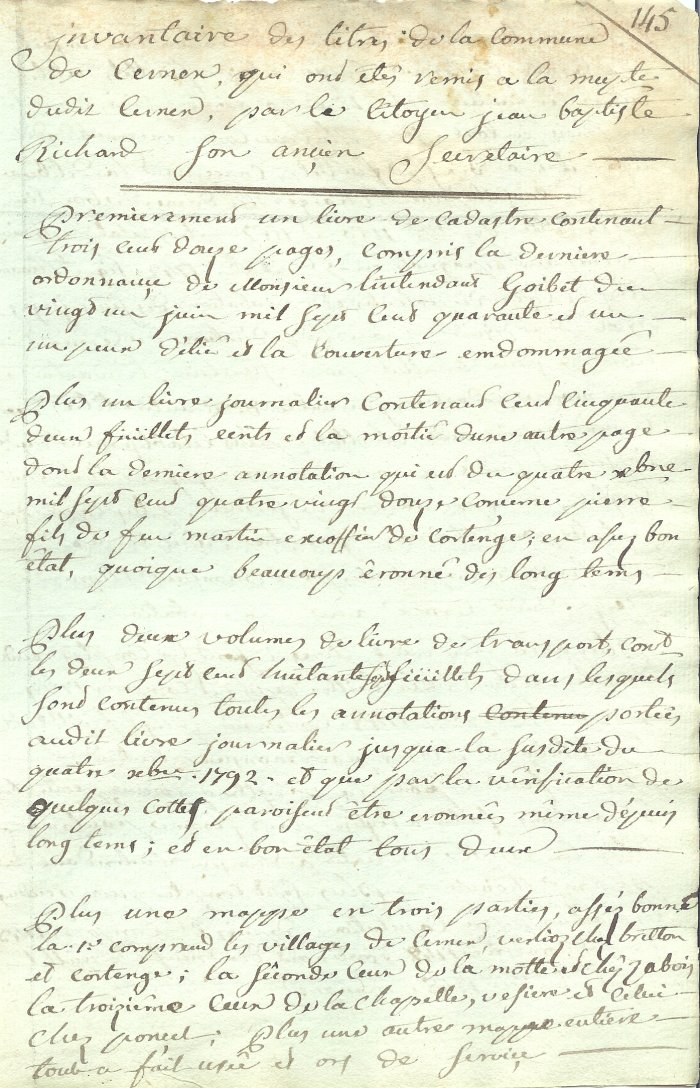 145
invantaire des titres de la commune
de Cernex, qui ont étés remis a la mupté
dudit Cernex, par le Citoyen jean baptiste
Richard son ançien Secretaire
Premierement un livre de Cadastre Contenant
trois cent douze pages, compris la derniere
ordonnançe de Monsieur l'intendant Goibet du
vingt un juin mil sept cent quarante et un
un peux délié et la Couverture emdommagée
Plus un livre journalier Contenant cent cinquante
deux fëuillets ecrits et la moitié dune autre page
dont la derniere annotation qui est du quatre xbre
mil sept cent quatre vingt douze conserne pierre
fils de feu martin excoffier de Cortenge; en assez bon
état, quoique beaucoup êronné dès long tems
Plus deux volumes de livre de transport, cont
les deux sept cent huitante sept fëuillets dans lesquels
sont contenus toutes les annotations contenu portées
audit livre journalier jusqua la susdite du
quatre xbre 1792 et que par la vérification de
quelques Cottes paroisent être eronnées même dépuis
long tems; et en bon état tous deux
Plus une mappe en trois parties, assés bonne
la 1e comprend les villages de Cernex, verlioz chez bretton
et Cortenge; la sêconde Ceux de la motte et chêz jabois
la troizième Ceux de la chapelle, vesiere et Celui
chez poncet; Plus une autre mappe entiere
tout a fait usée et ors de serviçe